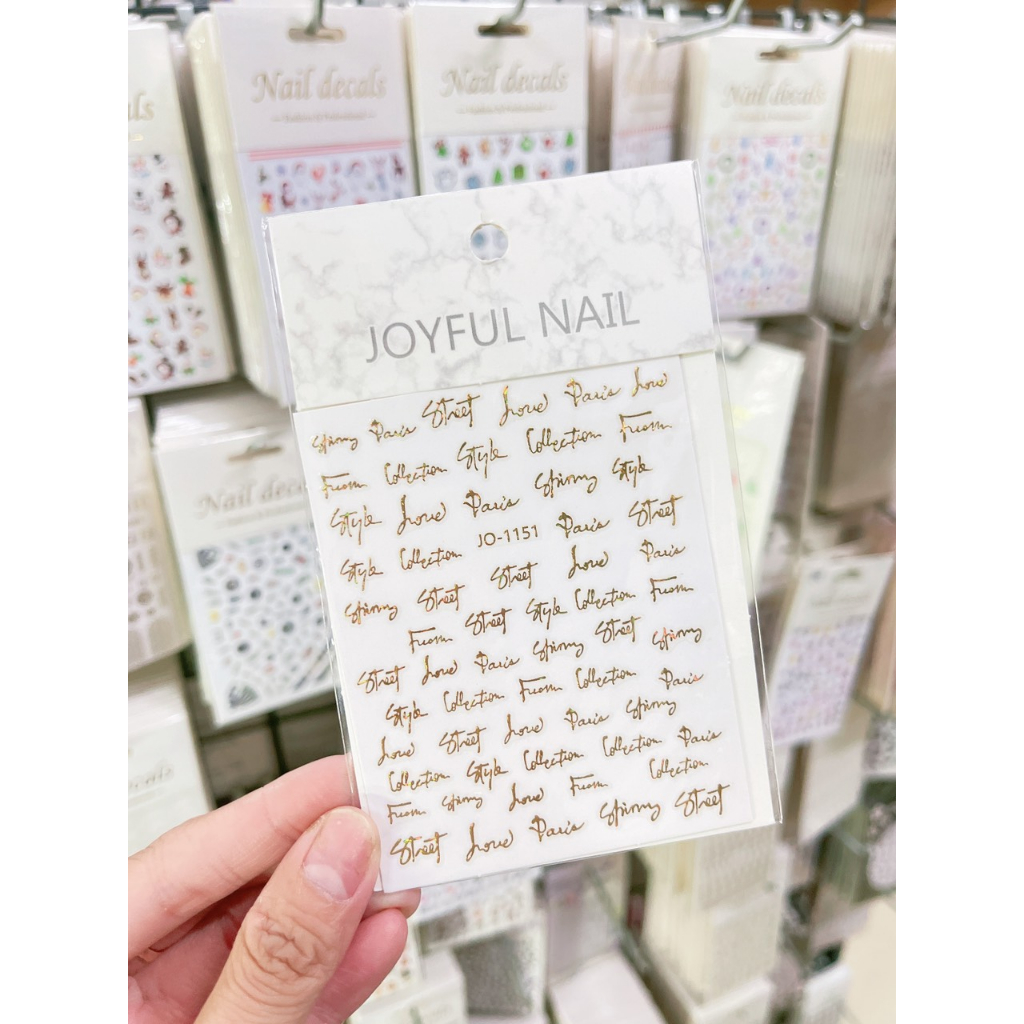 Nail decals
Nail decals
Nail decals
JOYFUL NAIL
Spinny Paris Street Love Paris Love
From Collection Style Collection From
Style Love Paris Spinny Style
Style Collection JO-1151 Paris Street
Spinny Street Street Love Paris
From Street Style Collection From
Street Love Paris Spinny Street Spinny
Style Collection From Collection Paris
Love Street Love Paris Spinny
Collection Style Collection Collection Paris
From Spinny Love From Collection
Street Love Paris Spinny Street
Nail deca